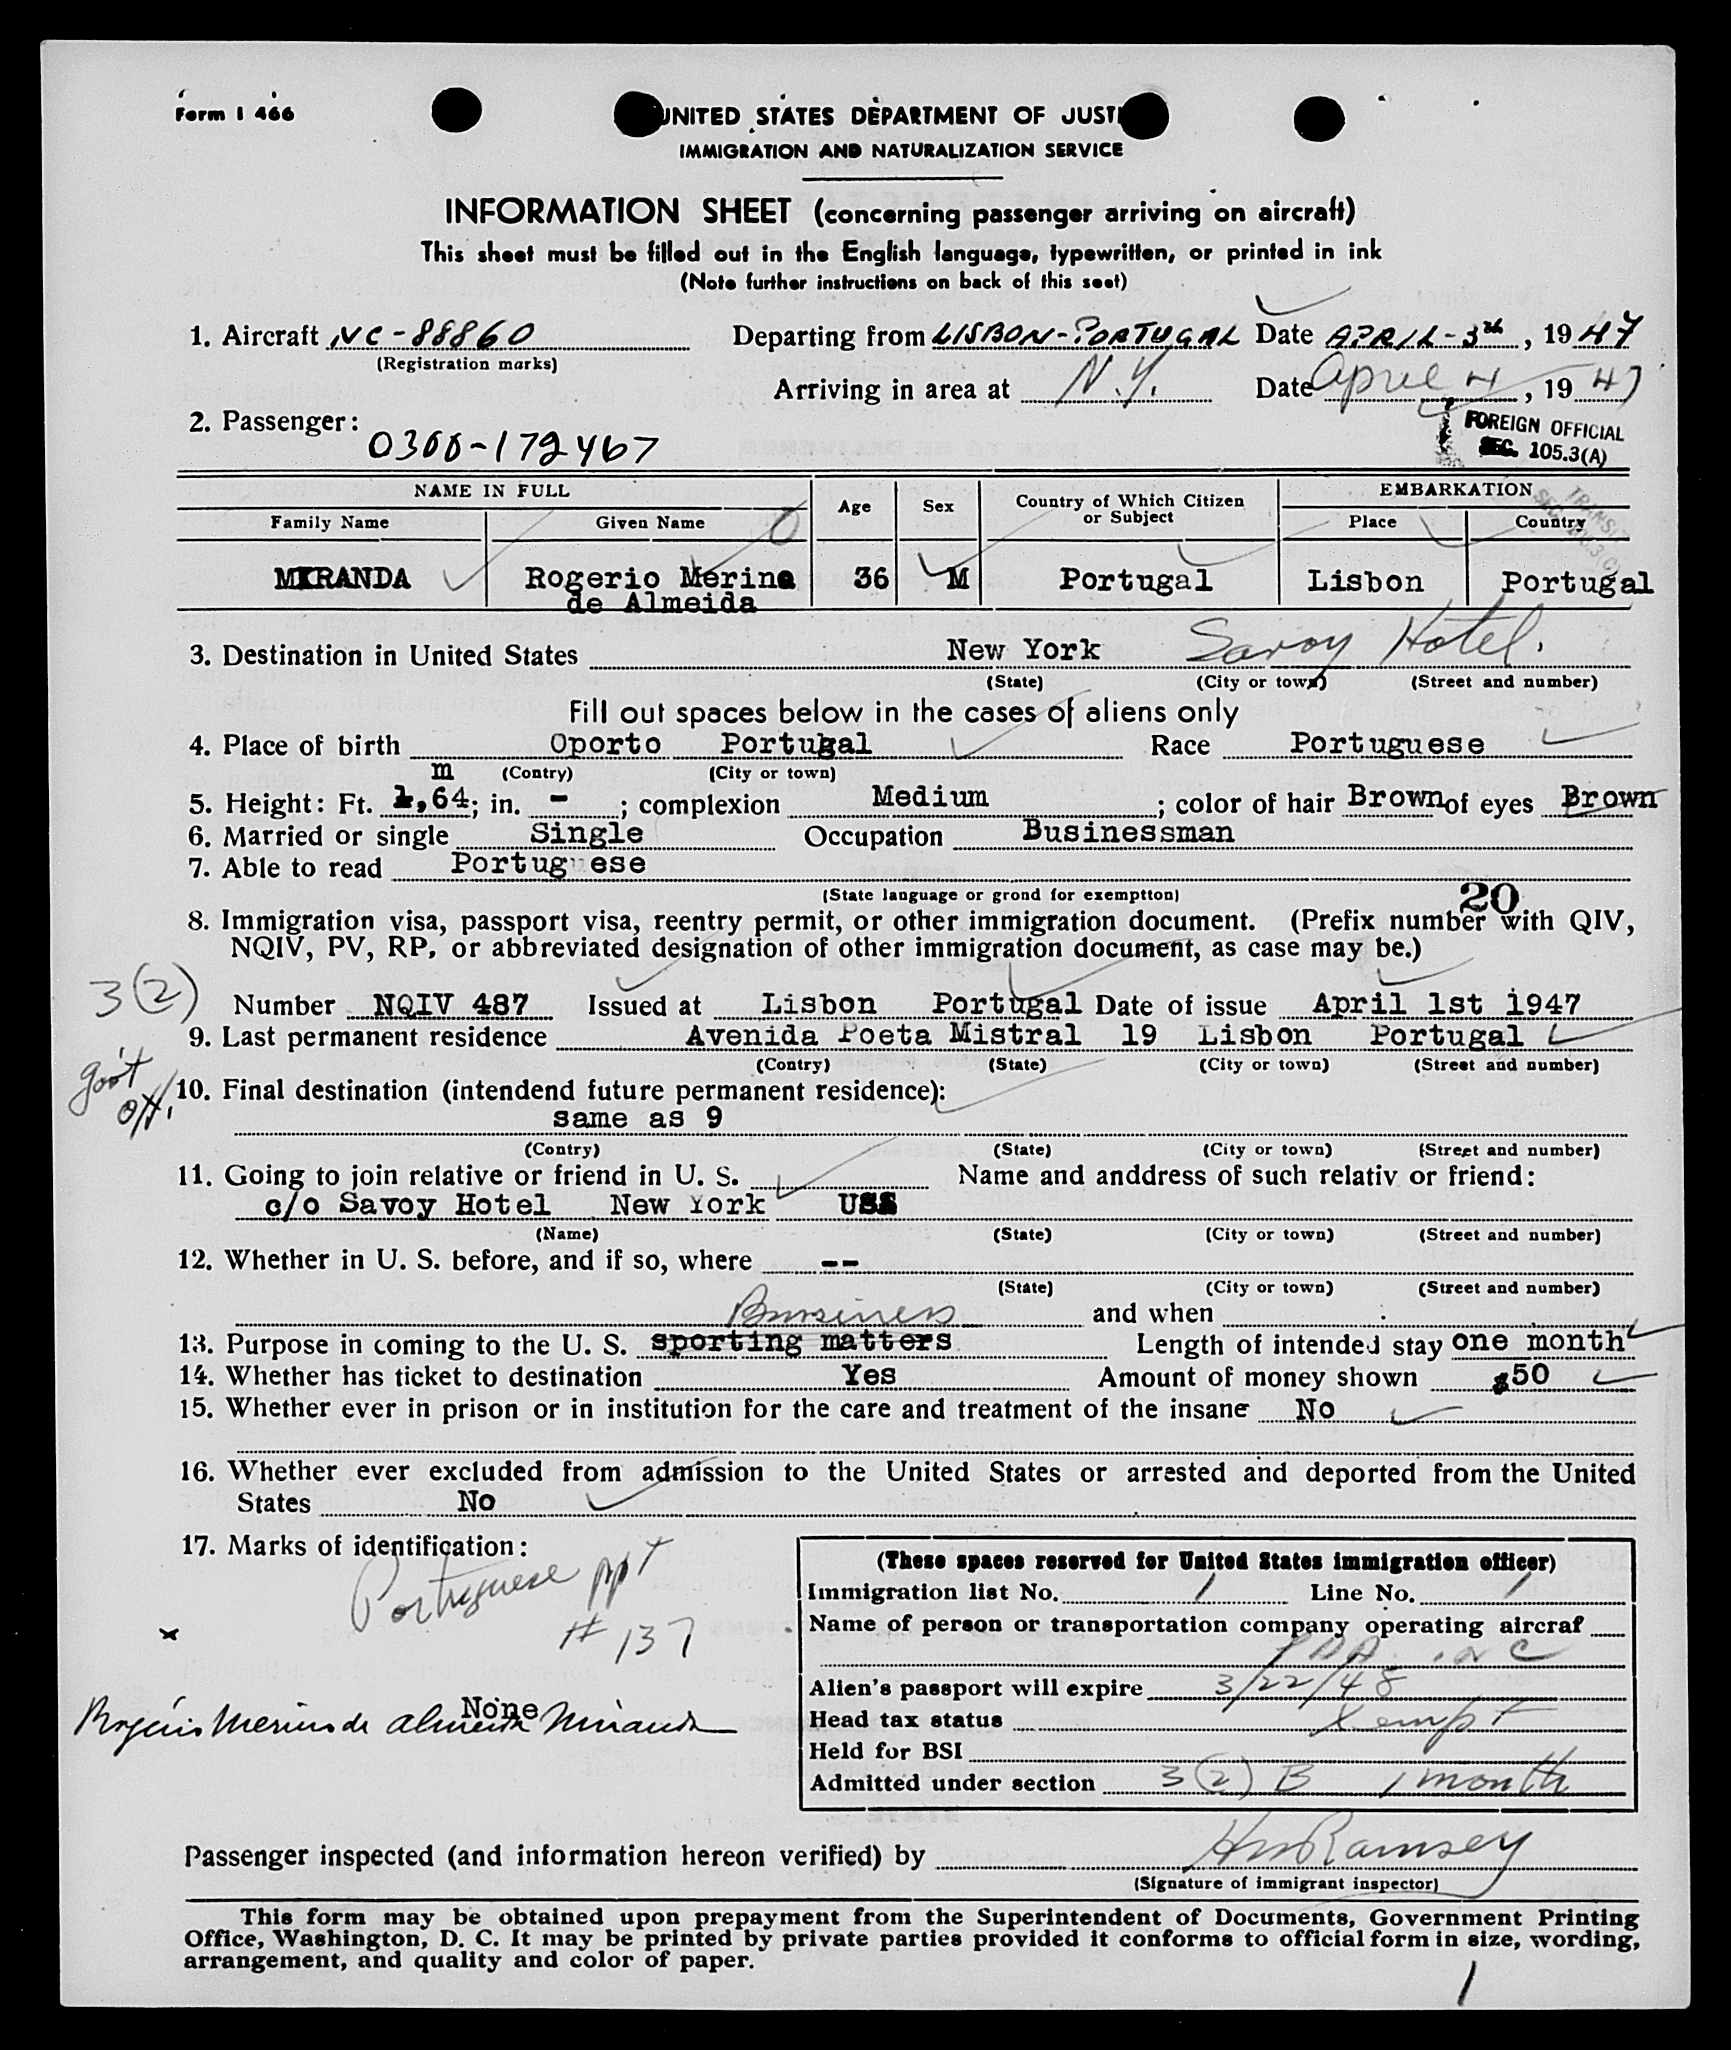 Form I 466
UNITED STATES DEPARTMENT OF JUSTI
IMMIGRATION AND NATURALIZATION SERVICE
INFORMATION SHEET (concerning passenger arriving on aircraft)
This sheet must be filled out in the English language, typewritten, or printed in ink
(Note further instructions on back of this seet)
1. Aircraft NC-88860 Departing from LISBON-PORTUGAL Date APRIL-3th, 1947
(Registration marks)
Arriving in area at N.Y. Date April 4, 1947
2. Passenger: 0300-172467
FOREIGN OFFICIAL
SEC. 105.3(A)
NAME IN FULL Age Sex Country of Which Citizen or Subject EMBARKATION
Family Name Given Name Place Country
TRANSIT
MIRANDA Rogerio Merino 36 M Portugal Lisbon Portugal
de Almeida
3. Destination in United States New York Savoy Hotel.
(State) (City or town) (Street and number)
Fill out spaces below in the cases of aliens only
4. Place of birth Oporto Portugal Race Portuguese
m (Contry) (City or town)
5. Height: Ft. 1,64; in. -; complexion Medium; color of hair Brown of eyes Brown
6. Married or single Single Occupation Businessman
7. Able to read Portuguese
(State language or grond for exemptton)
20
8. Immigration visa, passport visa, reentry permit, or other immigration document. (Prefix number with QIV,
NQIV, PV, RP, or abbreviated designation of other immigration document, as case may be.)
3(2)
Number NQIV 487 Issued at Lisbon Portugal Date of issue April 1st 1947
9. Last permanent residence Avenida Poeta Mistral 19 Lisbon Portugal
(Contry) (State) (City or town) (Street and number)
gov't
off.
10. Final destination (intendend future permanent residence):
same as 9
(Contry) (State) (City or town) (Street and number)
11. Going to join relative or friend in U. S. Name and anddress of such relativ or friend:
c/o Savoy Hotel New York USA
(Name) (State) (City or town) (Street and number)
12. Whether in U. S. before, and if so, where --
(State) (City or town) (Street and number)
Business and when
13. Purpose in coming to the U. S. sporting matters Length of intended stay one month
14. Whether has ticket to destination Yes Amount of money shown $50
15. Whether ever in prison or in institution for the care and treatment of the insane No
16. Whether ever excluded from admission to the United States or arrested and deported from the United
States No
17. Marks of identification:
Portuguese ppt
# 137
x
None
Rogério Merino de Almeida Miranda
(These spaces reserved for United States immigration officer)
Immigration list No. 1 Line No. 1
Name of person or transportation company operating aircraf
Alien's passport will expire 3/22/48
Head tax status Xempt
Held for BSI
Admitted under section 3(2) B 1 month
Passenger inspected (and information hereon verified) by HMRamsey
(Signature of immigrant inspector)
This form may be obtained upon prepayment from the Superintendent of Documents, Government Printing
Office, Washington, D. C. It may be printed by private parties provided it conforms to official form in size, wording,
arrangement, and quality and color of paper.
1